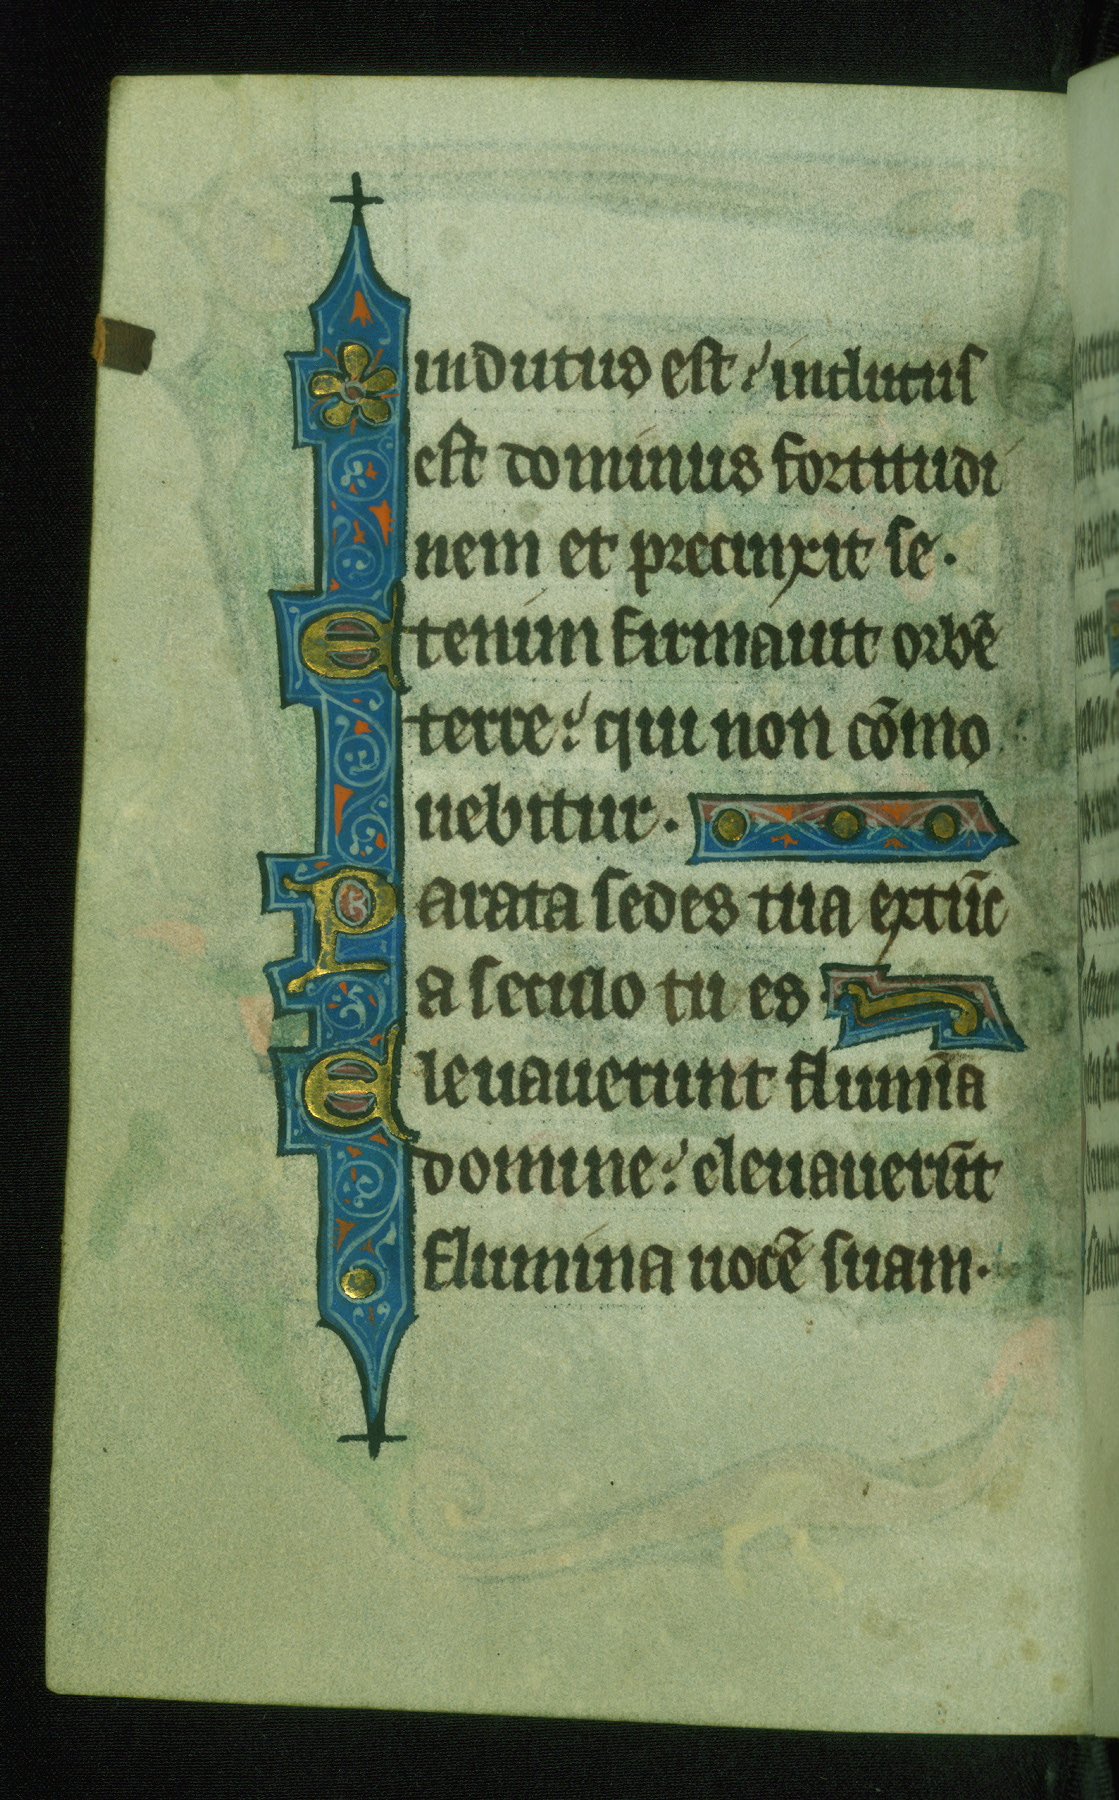 indutus est: indutus
est dominus fortitudi
nem et precinxit se.
Etenim firmauit orbē
terre: qui non cōmo
uebitur.
Parata sedes tua extūc
a seculo tu es.
Eleuauerunt flumīa
domine: eleuauerūt
flumina uocē suam.